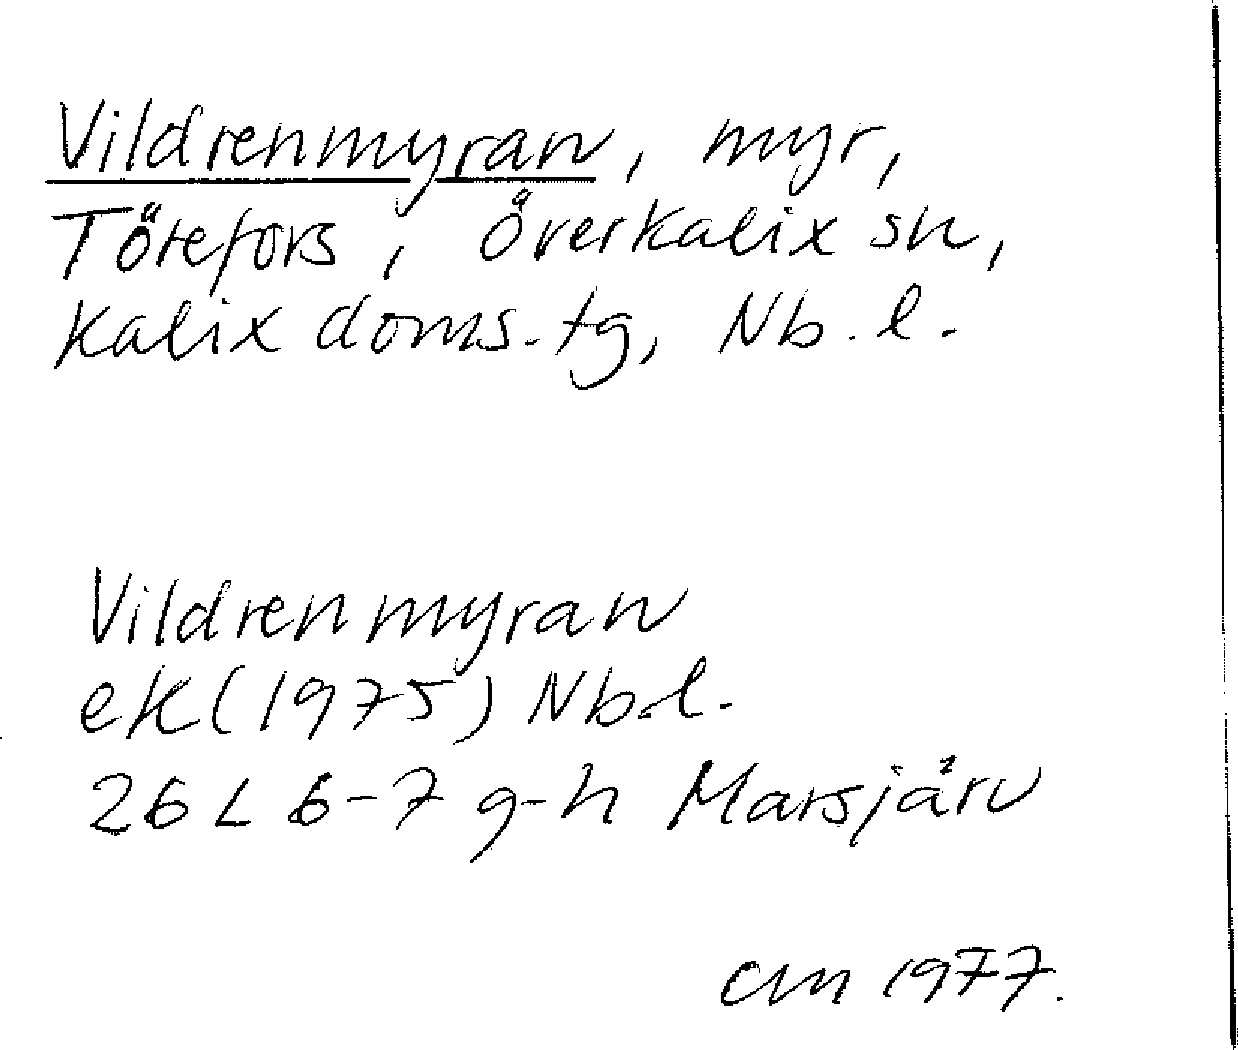 Vildrenmyran, myr,
Törefors, Överkalix sn,
Kalix doms.tg, Nb.l.
Vildrenmyran
ek(1975) Nb.l.
26 L 6-7 g-h Marsjärv
CM 1977.